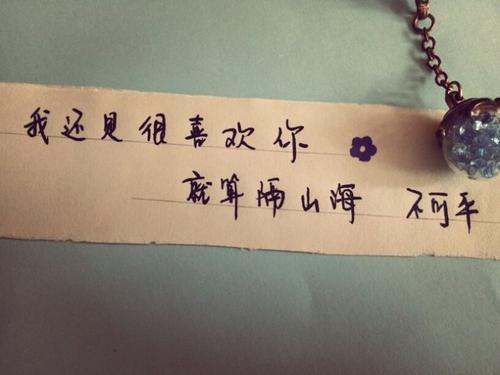 我还是很喜欢你
就算隔山海 不可平